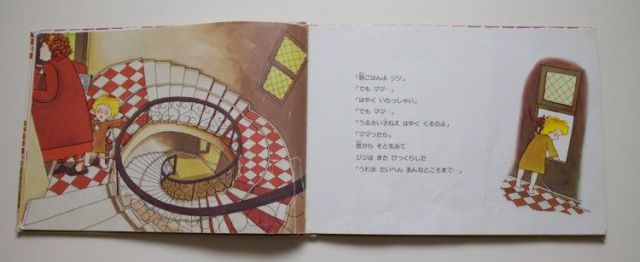 「朝ごはんよ ジジ」
「でも ママ…」
「はやく いらっしゃい」
「でも ママ…」
「うるさい子ねえ はやく くるのよ」
「ママったら」
窓から そとをみて
ジジは また びっくりした
「うわあ たいへん あんなところまで…」